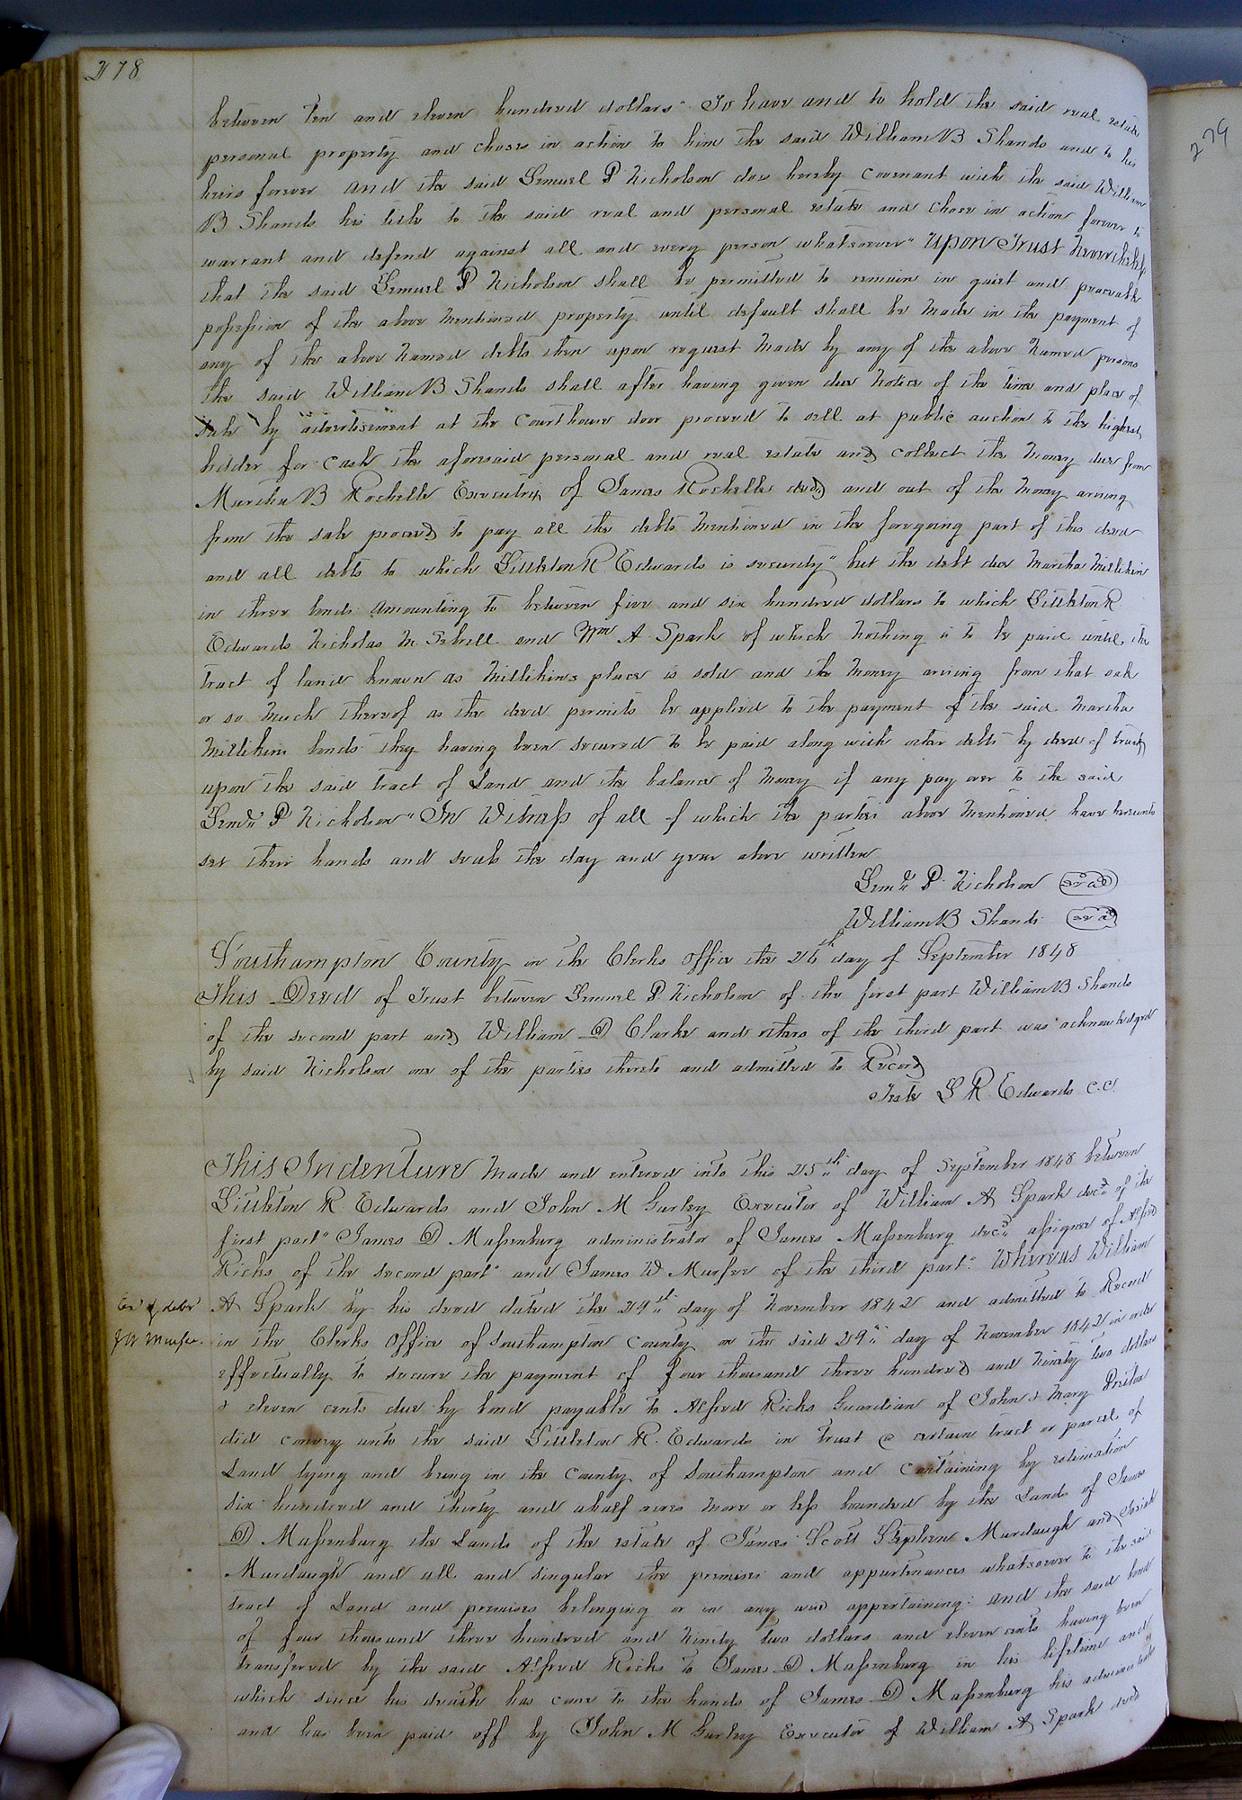 278
279
between Ten and eleven hundred dollars" To have and to hold the said real estate
personal property and choses in action to him the said William B Shands and to his
heirs forever and the said Lemuel P Nicholson does hereby covenant with the said William
B Shands his title to the said real and personal estate and chose in action forever to
warrant and defend against all and every person whatsoever" Upon Trust Nevertheless
that the said Lemuel P Nicholson shall be permitted to remain in quiet and peaceable
possession of the above mentioned property until default shall be made in the payment of
any of the above named debts then upon request made by any of the above named persons
the said William B Shands shall after having given due notice of the time and place of
sale by advertisement at the Courthouse door proceed to sell at public auction to the highest
bidder for cash the aforesaid personal and real estate and collect the money due from
Martha B Rochelle Executrix of James Rochelle decd, and out of the money arising
from the sale proceed to pay all the debts mentioned in the foregoing part of this deed
and all debts to which Littleton R Edwards is security" but the debt due Martha Millikin
in three bonds amounting to between five and six hundred dollars to which Littleton R
Edwards Nicholas M Sebrell and Wm A Spark of which nothing is to be paid until the
tract of land known as Millikins place is sold and the money arising from that sale
or so much thereof as the deed permits be applied to the payment of the said Martha
Millikins bonds they having been secured to be paid along with other debts by deed of trust
upon the said tract of Land and the balance of money if any pay over to the said
Leml P Nicholson" In Witness of all of which the parties above mentioned have hereunto
set their hands and seals the day and year above written
Leml P. Nicholson Seal
William B Shands Seal
Southampton County in the Clerks Office the 26th day of September 1848
This Deed of Trust between Lemuel P Nicholson of the first part William B Shands
of the second part and William D Clarke and others of the third part was acknowledged
by said Nicholson one of the parties thereto and admitted to Record
Teste L R Edwards C.C.
This Indenture made and entered into this 25th day of September 1848 between
Littleton R Edwards and John M Gurley Executor of William A Spark decd of the
first part" James D Massenburg administrator of James Massenburg decd assignee of Alfred
Ricks of the second part" and James W Murfee of the third part" Whereas William
A Spark by his deed dated the 29th day of November 1842 and admitted to Record
in the Clerks Office of Southampton County on the said 29th day of November 1842 in order
effectually to secure the payment of four thousand three hundred and ninety two dollars
& eleven cents due by bond payable to Alfred Ricks Guardian of John & Mary
did convey unto the said Littleton R. Edwards in trust a certain tract or parcel of
Land lying and being in the County of Southampton and containing by estimation
six hundred and thirty and a half acres more or less bounded by the Lands of James
D Massenburg the Lands of the estate of James Scott Stephen Murdaugh and Josiah
Murdaugh and all and singular the premises and appurtenances whatsoever to the said
tract of Land and premises belonging or in any wise appertaining: and the said bond
of four thousand three hundred and ninety two dollars and eleven cents having been
transfered by the said Alfred Ricks to James D Massenburg in his lifetime and
which since his death has come to the hands of James D Massenburg his administrator
and has been paid off by John M Gurley Executor of William A Spark decd
Ex & deld
J W Murfee